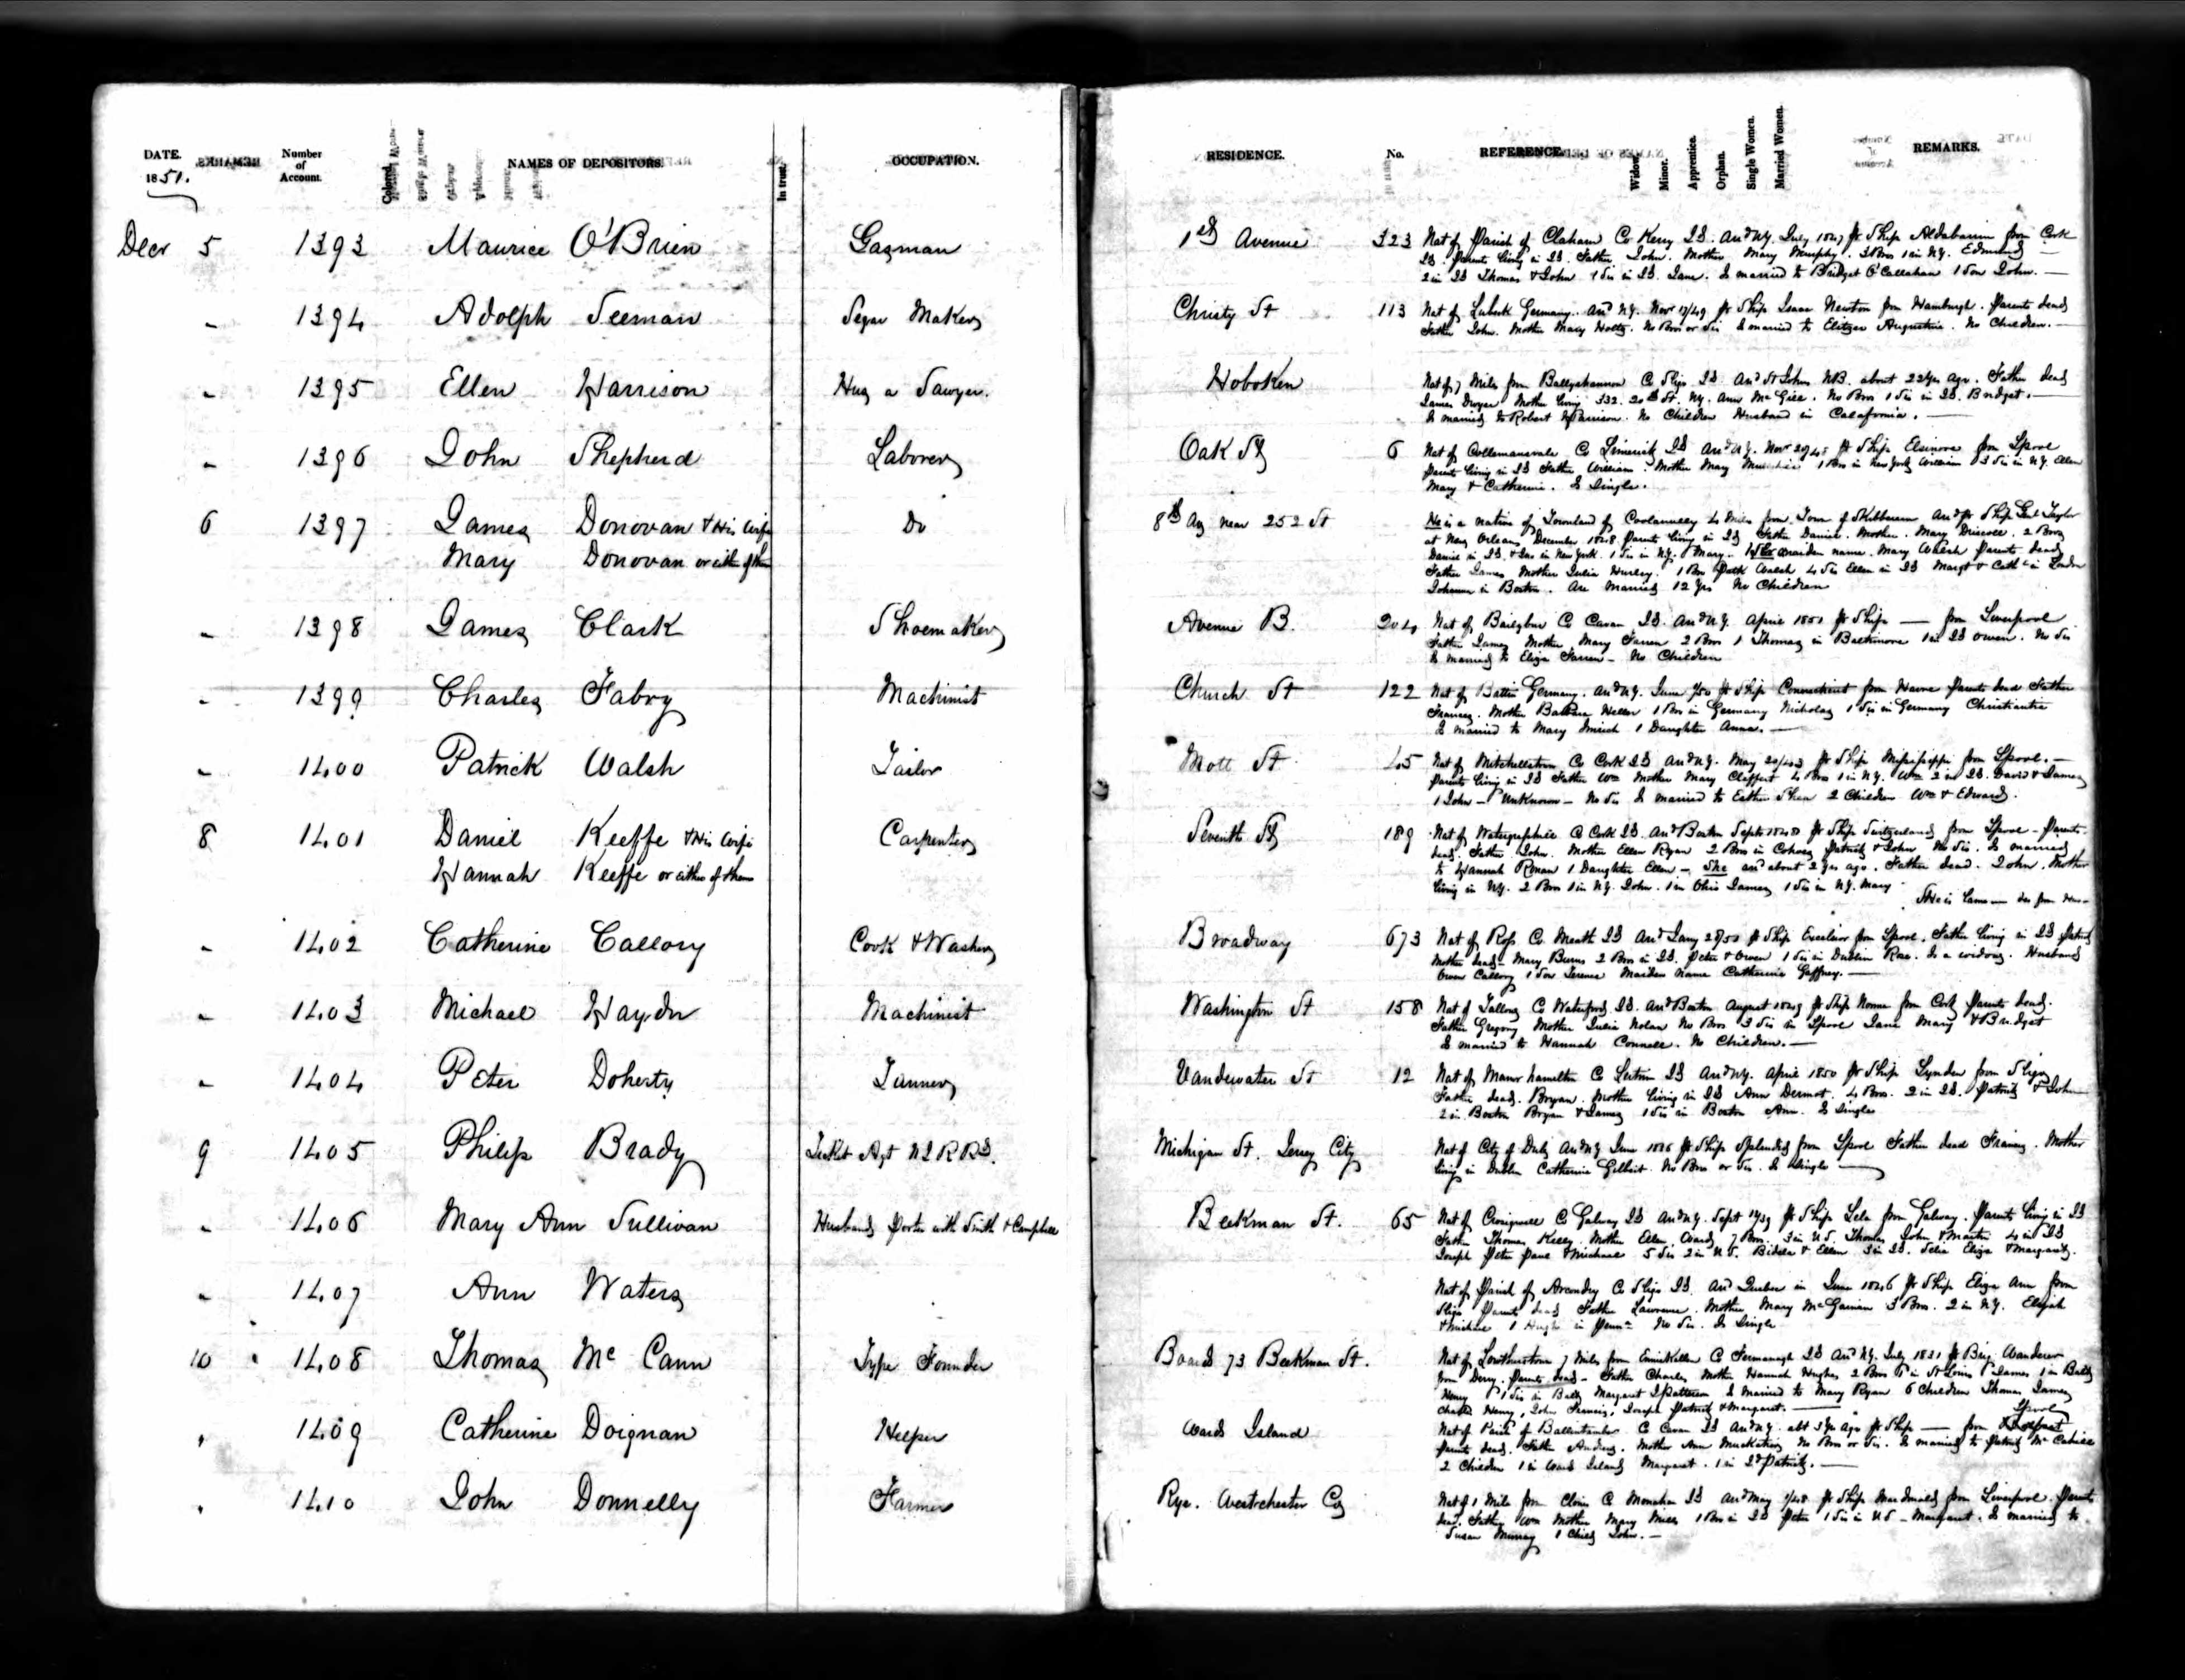 DATE. 1851. Number of Account. Colored. NAMES OF DEPOSITORS. In trust. OCCUPATION. RESIDENCE. No. REFERENCE. Widow. Minor. Apprentice. Orphan. Single Women. Married Women. REMARKS.
Decr 5 1393 Maurice O'Brien Gasman 1st Avenue 323 Nat of Parish of Claham Co Kerry Id. Arrd NY. July 1847 pr Ship Aldabaran from Cork
Id. Parents living in Id. Father John. Mother Mary Murphy. 3 Bros 1 in N.Y. Edmund —
2 in Id Thomas & John 1 Sis in Id. Jane. Is married to Bridget O'Callahan 1 Son John. —
" 1394 Adolph Seeman Segar Maker Christy St 113 Nat of Lubeck Germany. Arrd N.Y. Nor 17/49 pr Ship Isaac Newton from Hamburgh. Parents dead
Father John. Mother Mary Holtz. No Bros or Sis Is married to Augustine. No Children. —
" 1395 Ellen Harrison Hus a Sawyer. Hoboken Nat of 7 Miles from Ballyshannon Co Sligo Id Arrd St Johns NB. about 22 Yrs ago. Father dead
James Dwyer Mother living 332. 20th St. NY. Ann McGill. No Bros 1 Sis in Id. Bridget. —
Is married to Robert Harrison. No Children Husband in California. —
" 1396 John Shepherd Laborer Oak St 6 Nat of Co Limerick Id Arrd N.Y. Novr pr Ship Elsinore from Lpool
Parents living in Id Father William. Mother Mary 1 Bro in New York William 3 Sis in N.Y. Ellen
Mary & Catherine. Is Single.
6 1397 James Donovan & His Wife Do 8th Av near 252 St He is a native of Townland of 4 Miles from Town of Skibbereen Arrd pr Ship Taylor
Mary Donovan or either of them at New Orleans December 1848 Parents living in Id Father Daniel. Mother. Mary Driscoll. 2 Bros
Daniel in Id. & Jas in New York. 1 Sis in N.Y. Mary. Her maiden name. Mary Walsh Parents dead
Father James Mother Julia Hurley. 1 Bro Patk Walsh 4 Sis Ellen in Id Margt & Cathe in London
Johanna in Boston. Are Married 12 Yrs No Children
" 1398 James Clark Shoemaker Avenue B. 204 Nat of Co Cavan Id. Arrd N.Y. April 1851 pr Ship — from Liverpool
Father James Mother Mary Farren 2 Bros 1 Thomas in Baltimore 1 in Id Owen. No Sis
Is married to Eliza Farren — No Children
" 1399 Charles Fabry Machinist Church St 122 Nat of Germany. Arrd N.Y. June 1/50 pr Ship Connecticut from Havre Parents dead Father
Francis. Mother Barbara Heller 1 Bro in Germany Nicholas 1 Sis in Germany Christiantia
Is married to Mary 1 Daughter Anna. —
" 1400 Patrick Walsh Tailor Mott St 45 Nat of Mitchellstown Co Cork Id Arrd N.Y. May pr Ship Mississippi from Lpool. —
Parents living in Id Father Wm Mother Mary Cliffort 4 Bros 1 in N.Y. Wm 2 in Id. David & James
1 John — Unknown — No Sis Is married to Esther Shea 2 Children Wm & Edward.
8 1401 Daniel Keeffe & His Wife Carpenter Seventh St 189 Nat of Co Cork Id. Arrd Boston Septr 1848 pr Ship Switzerland from Lpool — Parents
Hannah Keeffe or either of them dead. Father John. Mother Ellen Ryan 2 Bros in Cohoes Patrick & John No Sis. Is married
to Hannah Ronan 1 Daughter Ellen — She arrd about 2 Yrs ago. Father dead. John. Mother
living in NY. 2 Bros 1 in N.Y. John. 1 in Ohio James 1 Sis in N.Y. Mary
She is
" 1402 Catherine Callory Cook & Washer Broadway 673 Nat of Ross Co Meath Id Arrd Jany 28/50 pr Ship Excelsior from Lpool. Father living in Id Patrick
Mother dead — Mary Burns 2 Bros in Id. Peter & Owen 1 Sis in Dublin Rose. Is a widow. Husband
Owen Callory 1 Son Terence Maiden name Catherine Gaffney. —
" 1403 Michael Haydn Machinist Washington St 158 Nat of Tallow Co Waterford Id. Arrd Boston August 1849 pr Ship Norma from Cork Parents dead.
Father Gregory Mother Julia Nolan No Bros 3 Sis in Lpool Jane Mary & Bridget
Is married to Hannah Connell. No Children. —
" 1404 Peter Doherty Tanner Vandewater St 12 Nat of Manor hamilton Co Leitrim Id Arrd NY. April 1850 pr Ship Lynden from Sligo
Father dead. Bryan. Mother living in Id Ann Dermot. 4 Bros. 2 in Id. Patrick & John
2 in Boston Bryan & James 1 Sis in Boston Ann. Is Single
9 1405 Philip Brady Ticket Agt NJ R Rd. Michigan St. Jersey City Nat of City of Dub Arrd N.Y June 1846 pr Ship Splendid from Lpool Father dead Francis. Mother
living in Dublin Catherine Gilbert. No Bros or Sis. Is Single —
" 1406 Mary Ann Sullivan Husband Porter with Smith & Campbell Beekman St. 65 Nat of Co Galway Id Arrd N.Y. Sept pr Ship Lela from Galway. Parents living in Id
Father Thomas Kelly. Mother Ellen Ward 7 Bros. 3 in U.S. Thomas John & Martin 4 in Id
Joseph Peter Paul & Michael 5 Sis 2 in U.S. Bidelia & Ellen 3 in Id. Delia Eliza & Margaret.
" 1407 Ann Waters Nat of Parish of Co Sligo Id. Arrd Quebec in June 1846 pr Ship Eliza Ann from
Sligo Parents dead Father Lawrence. Mother Mary 3 Bros. 2 in N.Y. Elijah
& Michael 1 Hugh in Penna No Sis. Is Single
10 1408 Thomas Mc Cann Type Founder Boards 73 Beekman St. Nat of Lowtherstown 7 Miles from Enniskillen Co Fermanagh Id Arrd N.Y. July 1831 pr Brig Wanderer
from Derry. Parents dead — Father Charles Mother Hannah Hughes 2 Bros 1 in St Louis James 1 in Balt
Henry 1 Sis in Balt Margaret Patterson Is Married to Mary Ryan 6 Children Thomas James
Charles Henry, John Francis, Joseph Patrick & Margaret. —
" 1409 Catherine Doignan Helper Wards Island Nat of Parish of Co Cavan Id Arrd N.Y. abt 3 Yrs ago pr Ship — from Lpool
Parents dead. Father Andrew. Mother Ann No Bros or Sis. Is married to Patrick Mc
2 Children 1 in Wards Island Margaret. 1 in Id Patrick. —
" 1410 John Donnelly Farmer Rye. Westchester Co Nat of 1 Mile from Co Monahan Id Arrd May 1/48 pr Ship from Liverpool. Parents
dead. Father Wm Mother Mary Mills 1 Bro in Id Peter 1 Sis in U S — Margaret. Is married to
Susan Murray 1 Child John. —